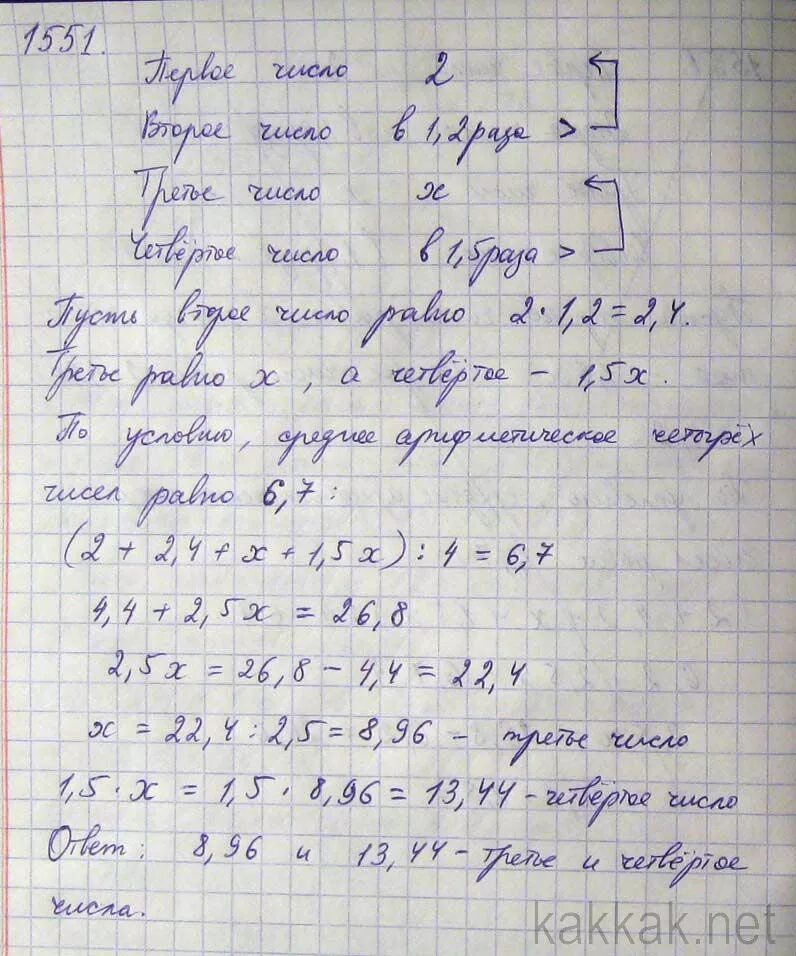 1551.
Первое число 2
Второе число в 1,2 раза >
Третье число x
Четвёртое число в 1,5 раза >
Пусть второе число равно 2·1,2=2,4.
Третье равно x, а четвёртое – 1,5x.
По условию, среднее арифметическое четырёх
чисел равно 6,7:
(2 + 2,4 + x + 1,5x) : 4 = 6,7
4,4 + 2,5x = 26,8
2,5x = 26,8 – 4,4 = 22,4
x = 22,4 : 2,5 = 8,96 – третье число
1,5·x = 1,5·8,96 = 13,44 – четвёртое число
Ответ: 8,96 и 13,44 – третье и четвёртое
числа.
kakkak.net